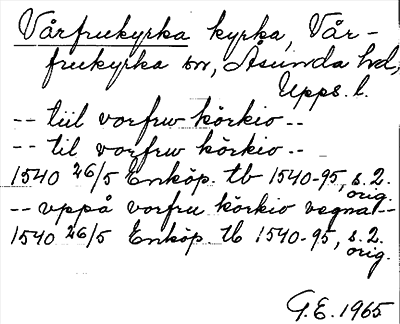 Vårfrukyrka kyrka, Vår-
frukyrka sn, Åsunda hd,
Upps. l.
-- tiil vorfrw körkio --
-- til vorfrw körkio --
1540 26/5 Enköp. tb 1540-95, s. 2.
orig.
-- vppå vorfru körkio vegna --
1540 26/5 Enköp. tb 1540-95, s. 2.
orig.
G.E. 1965